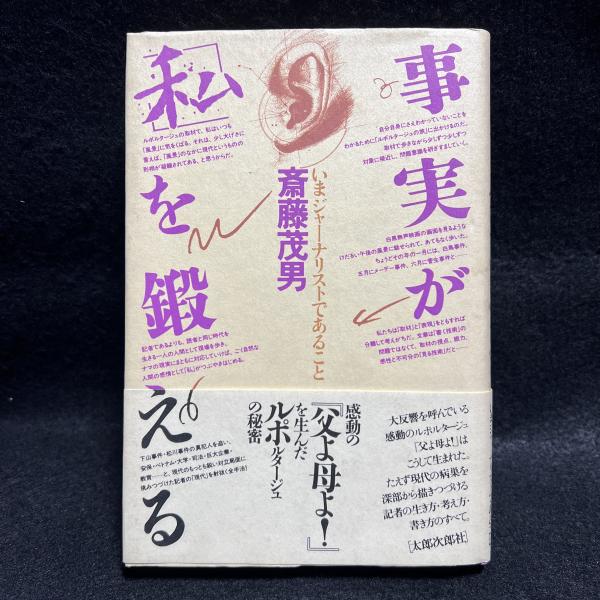 事実が
「私」を鍛える
いまジャーナリストであること
斎藤茂男
自分自身にさえわかっていないことを
わかるために「ルポルタージュの旅」に出かけるのだ。
取材で歩きながら少しずつ少しずつ
対象に接近し、問題意識を研ぎすましていく。
白黒無声映画の画面を見るような
けだるい午後の風景に魅せられて、あてもなく歩いた。
ちょうどその年の一月には、白鳥事件、
五月にメーデー事件、六月に菅生事件と──
私たちは「取材」と「表現」をともすれば
分離して考えがちだ。文章は「書く技術」の
問題ではなくて、取材の視点、眼力、
感性と不可分の「見る技術」だと──
ルポルタージュの取材で、私はいつも
「風景」に気をくばる。それは、少し大げさに
言えば、「風景」のなかに現代というものの
刑相が凝縮されてある、と思うからだ。
記者であるよりも、読者と同じ時代を
生きる一人の人間として現場を歩き、
ナマの現実にまともに対応していけば、ごく自然な
人間の感情として「私」がつぶやきはじめる。
大反響を呼んでいる
感動のルポルタージュ
『父よ母よ!』は
こうして生まれた。
たえず現代の病巣を
深部から描きつづける
記者の生き方・考え方・
書き方のすべて。
[太郎次郎社]
感動の
『父よ母よ!』
を生んだ
ルポルタージュ
の秘密
下山事件・松川事件の真犯人を追い、
安保・ベトナム・大学・司法・巨大企業・
教育──と、現代のもっとも鋭い対立局面に
挑みつづけた記者の「現代」を射抜く全手法!